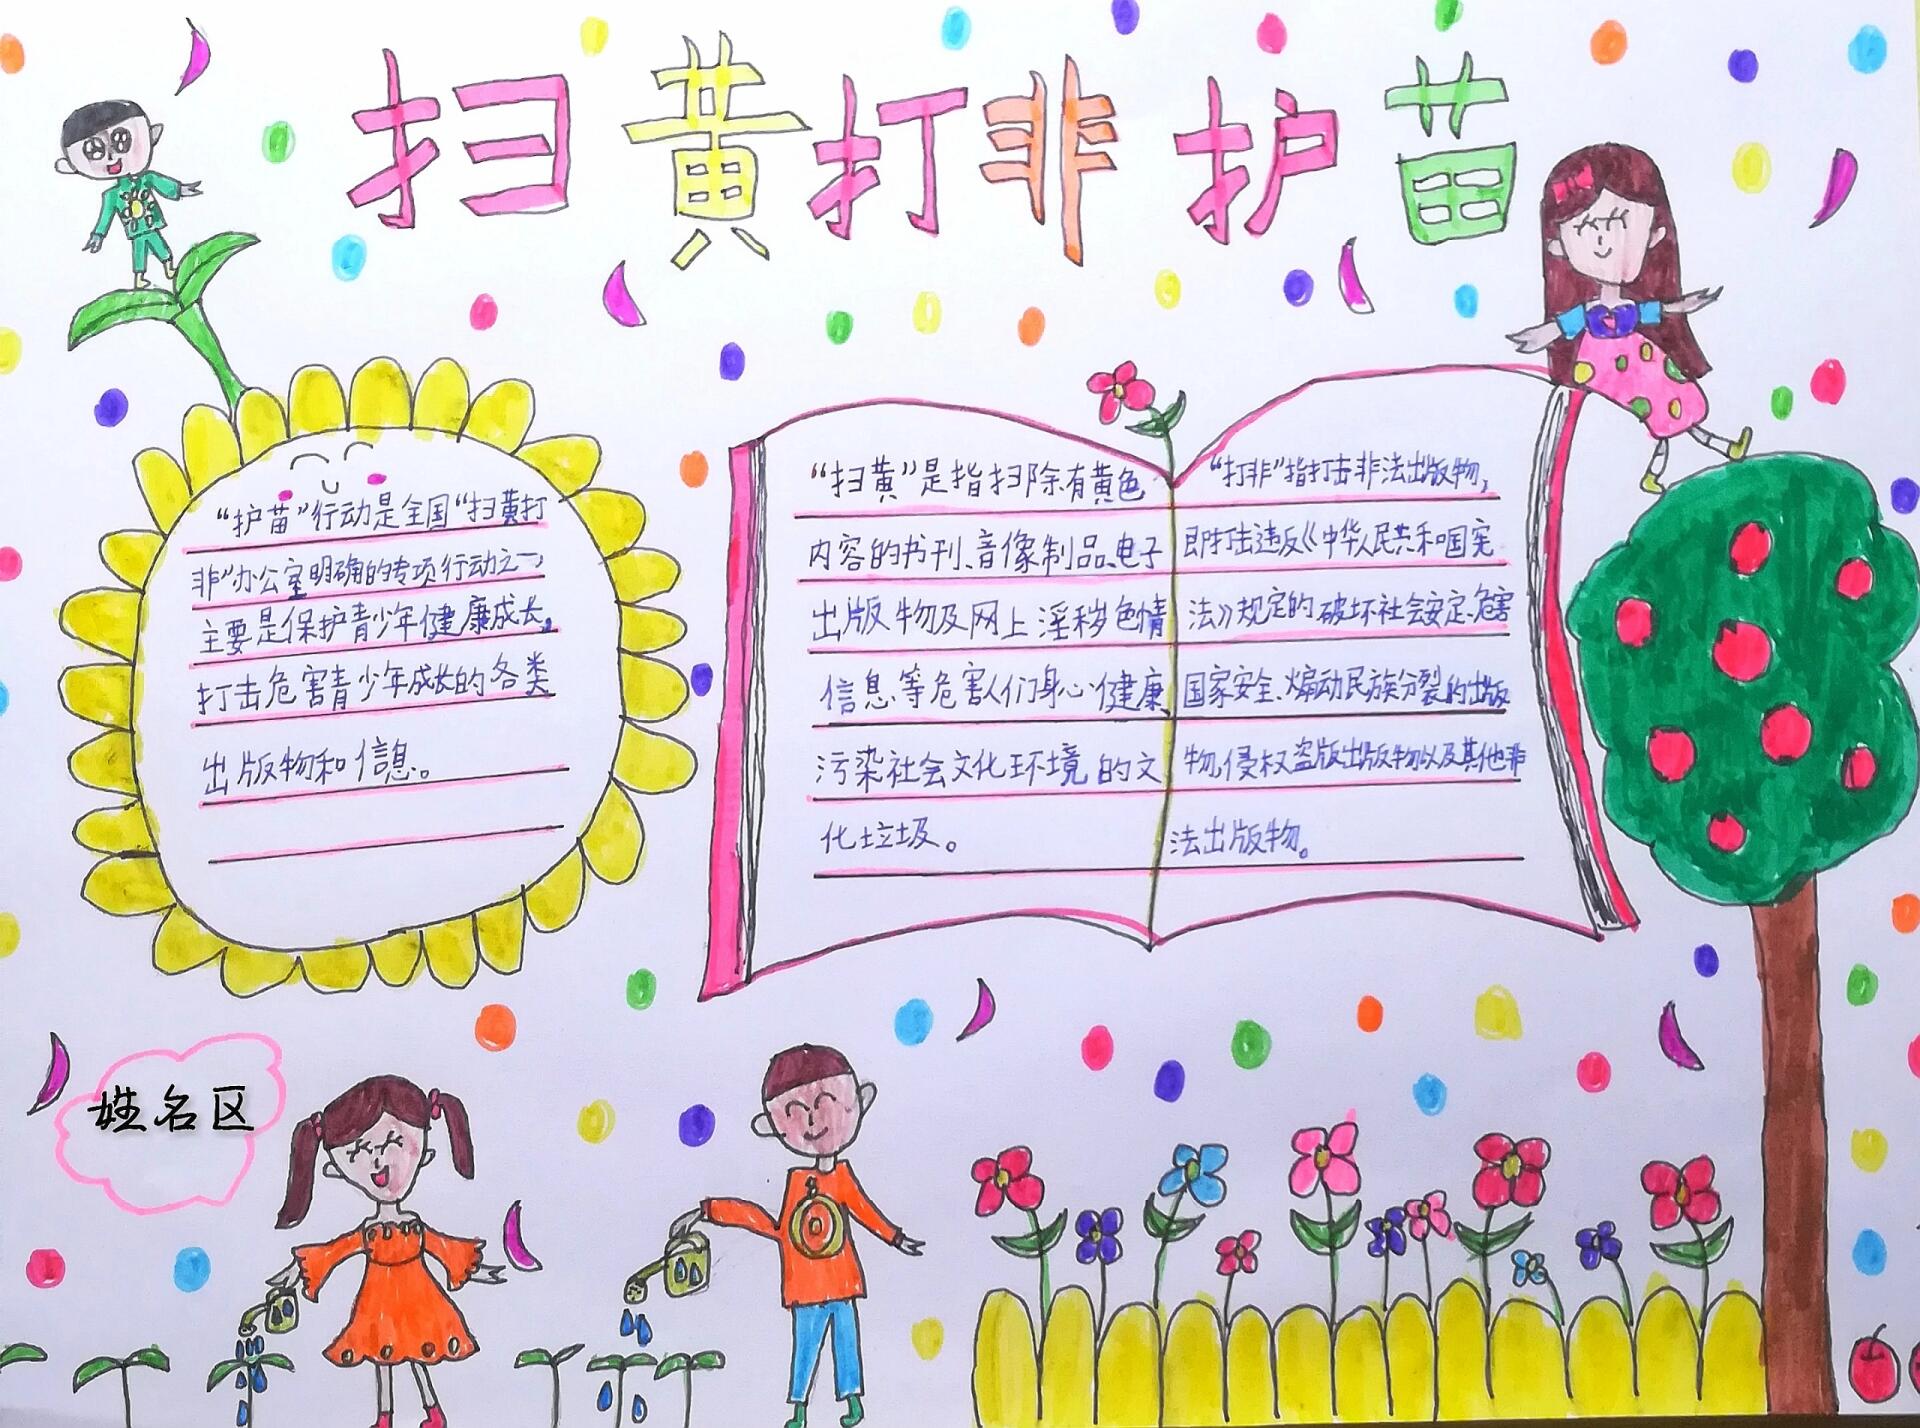 扫黄打非 护苗
“护苗”行动是全国“扫黄打
非”办公室明确的专项行动之一,
主要是保护青少年健康成长。
打击危害青少年成长的各类
出版物和信息。
“扫黄”是指扫除有黄色
内容的书刊、音像制品、电子
出版物及网上淫秽色情
信息等危害人们身心健康、
污染社会文化环境的文
化垃圾。
“打非”指打击非法出版物,
即打击违反《中华人民共和国宪
法》规定的破坏社会安定、危害
国家安全、煽动民族分裂的出版
物,侵权盗版出版物以及其他非
法出版物。
姓名区